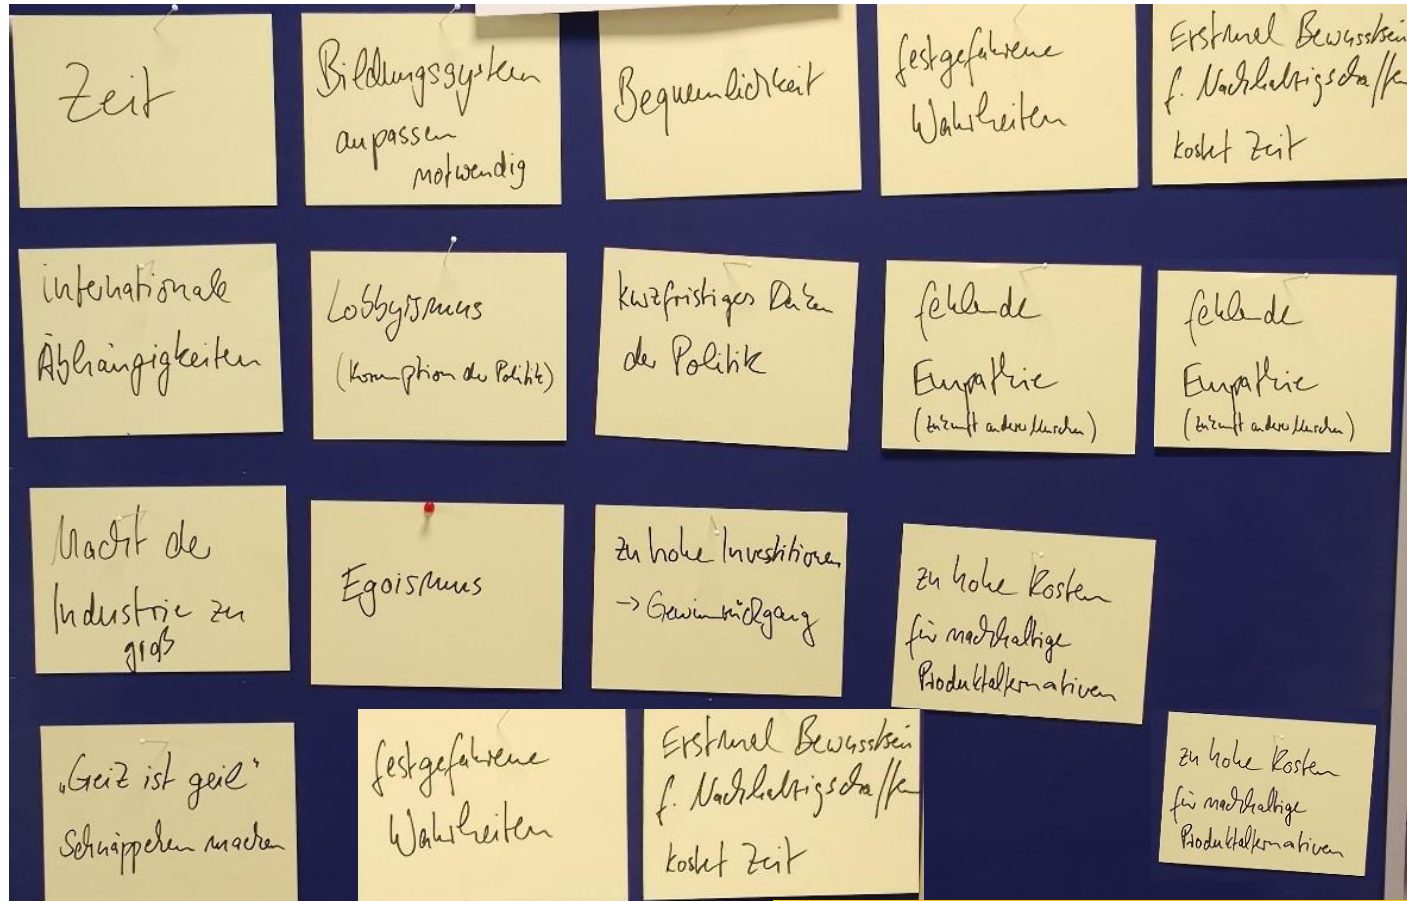 Zeit
Bildungssystem
anpassen
notwendig
Bequemlichkeit
festgefahrene
Wahrheiten
Erstmal Bewusstsein
f. Nachhaltigschaffen
kostet Zeit
internationale
Abhängigkeiten
Lobbyismus
(Korruption der Politik)
kurzfristiges Denken
der Politik
fehlende
Empathie
(Zukunft anderer Menschen)
fehlende
Empathie
(Zukunft anderer Menschen)
Macht der
Industrie zu
groß
Egoismus
zu hohe Investitionen
-> Gewinnrückgang
zu hohe Kosten
für nachhaltige
Produktalternativen
„Geiz ist geil“
Schnäppchen machen
festgefahrene
Wahrheiten
Erstmal Bewusstsein
f. Nachhaltigschaffen
kostet Zeit
zu hohe Kosten
für nachhaltige
Produktalternativen